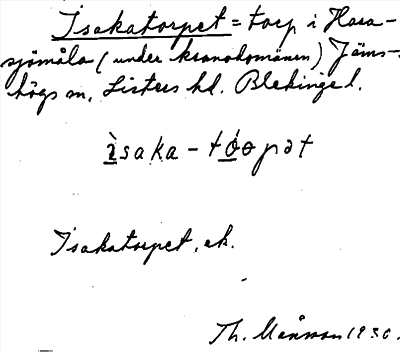 Isakatorpet = torp i Hara-
sjömåla (under kronodomänen) Jäms-
högs sn, Listers hd. Blekinge l.
ìsaka - tóopət
Isakatorpet, ek.
Th. Månsson 1930.